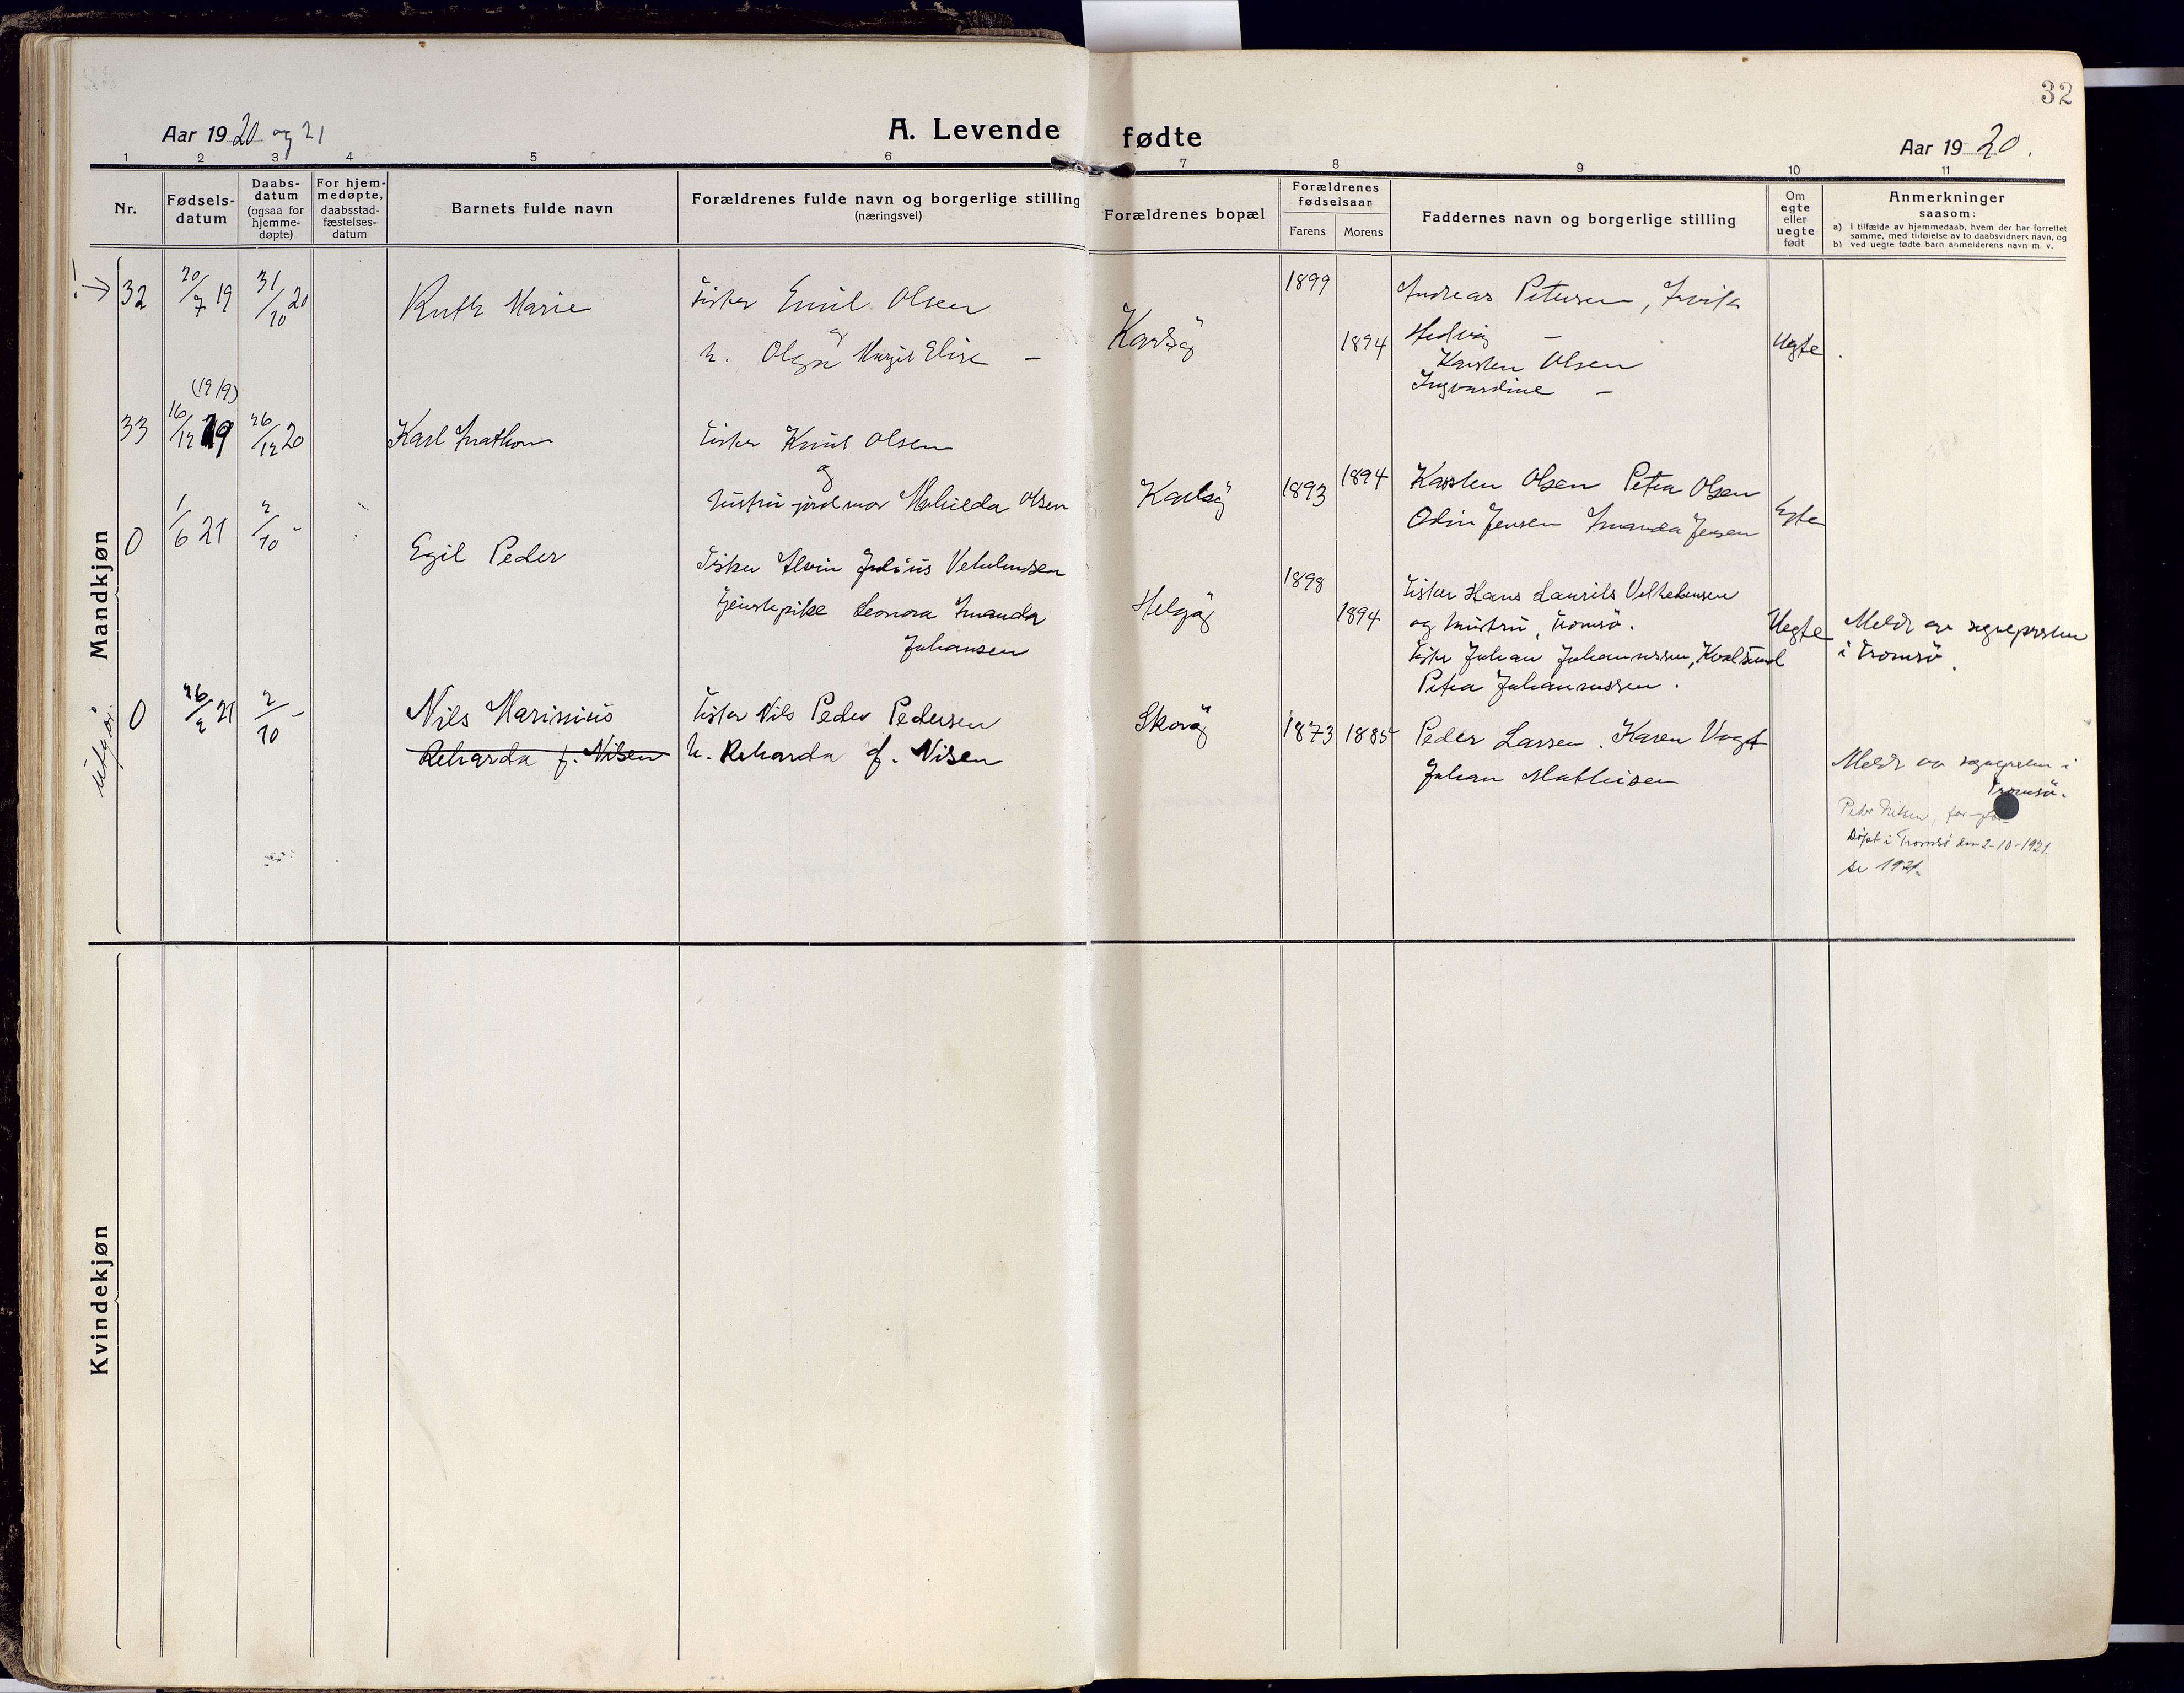 32
Aar 1920 og 21
A. Levende fødte
Aar 1920.
1 2 3 4 5 6 7 8 9 10 11
Nr.
Fødsels-
datum
Daabs-
datum
(ogsaa for
hjemme-
døpte)
For hjem-
medøpte,
daabsstad-
fæstelses-
datum
Barnets fulde navn
Forældrenes fulde navn og borgerlige stilling
(næringsvei)
Forældrenes bopæl
Forældrenes
fødselsaar
Farens Morens
Faddernes navn og borgerlige stilling
Om
egte
eller
uegte
født
Anmerkninger
saasom:
a) i tilfælde av hjemmedaab, hvem der har forrettet
samme, med tilføielse av to daabsvidners navn, og
b) ved uegte fødte barn anmelderens navn m. v.
Mandkjøn
32 20/7 19 31/10 20 Ruth Marie
Fisker Emil Olsen
og
h. Olga Margit Elise —
Karlsø
1899
1894
Andreas Petersen,
Hedvig —
Karsten Olsen
Ingvardine —
Uegte
33 (1919)
16/12 19 26/12 20 Karl
Fisker Knut Olsen
og
hustru jordmor Olsen
Karlsø
1893 1894
Karsten Olsen Petra Olsen
Odin Jensen Amanda Jensen
Egte
0 1/6 21 2/10 - Egil Peder
Fisker Alvin Julius
Tjenestepike Leonora Amanda
Johansen
Helgø
1898
1894
Fisker Hans Laurits
og hustru, Tromsø.
Fisker Johan Johannessen, Kvalsund
Petra Johannessen.
Uegte
Meldt av sogneprsten
i Tromsø.
utgår.
0 26/2 21 2/10 - Nils Marinius
Reharda f. Nilsen
Fisker Nils Peder Pedersen
h. Reharda f. Nilsen
Skorøy
1873 1885
Peder Larsen. Karen Vogt
Johan Mathisen
Meldt av sogneprsten i
Tromsø.
Peder Nilsen,
Døpt i Tromsø den 2-10-1921.
se 1921.
Kvindekjøn